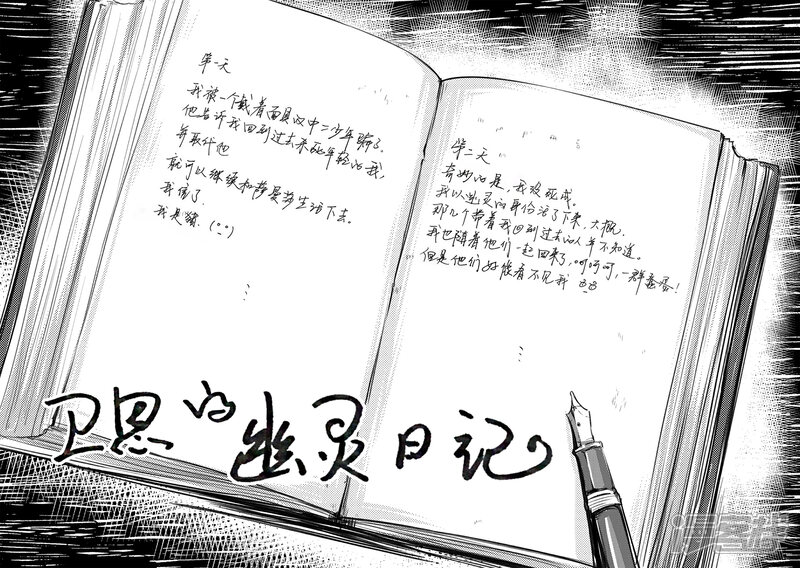 第一天
我被一个戴着面具汉中二少年骗了.
他告诉我回到过去杀死年轻的我,
并取代他
就可以继续和莎曼莎生活下去。
我信了.
我是猪.
第二天
奇妙的是,我没死成。
我以幽灵的身份活了下来,大概.
那几个带着我回到过去的人并不知道。
我也随着他们一起回来了,呵呵呵,一群蠢蛋!
但是他们好像看不见我
卫恩的幽灵日记